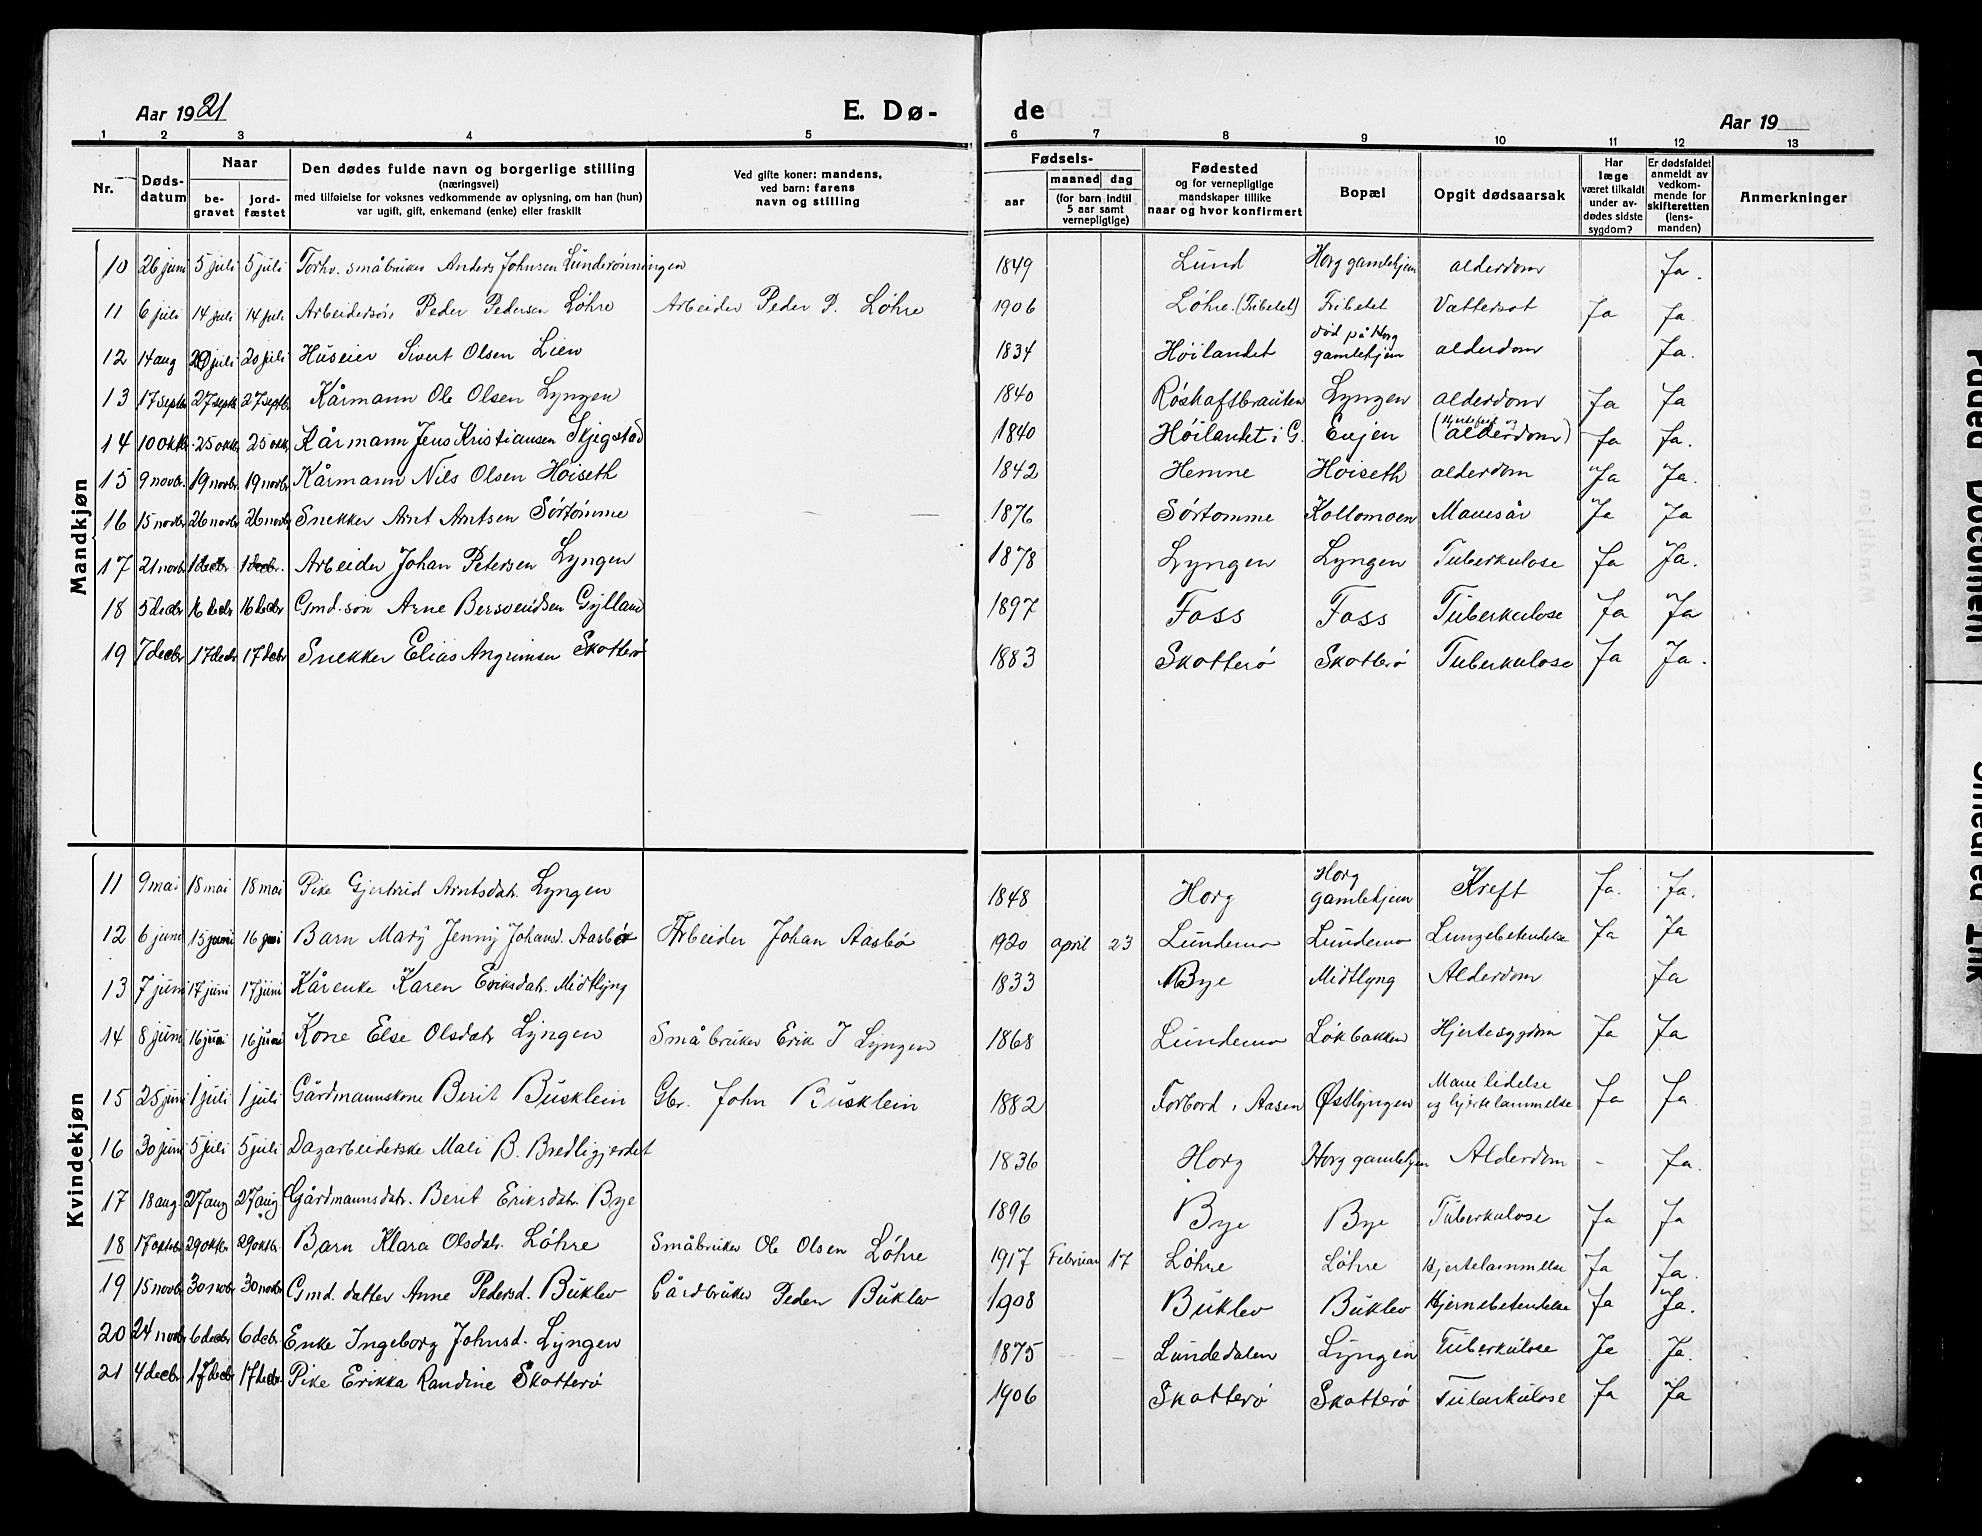 Aar 1921
E. Dø-
de
Aar 19
1 2 3 4 5 6 7 8 9 10 11 12 13
Nr.
Døds-
datum
Naar
be-
gravet
jord-
fæstet
Den dødes fulde navn og borgerlige stilling
(næringsvei)
med tilføielse for voksnes vedkommende av oplysning, om han (hun)
var ugift, gift, enkemand (enke) eller fraskilt
Ved gifte koner: mandens,
ved barn: farens
navn og stilling
Fødsels-
aar
maaned dag
(for barn indtil
5 aar samt
vernepligtige)
Fødested
og for vernepligtige
mandskaper tillike
naar og hvor konfirmert
Bopæl
Opgit dødsaarsak
Har
læge
været tilkaldt
under av-
dødes sidste
sygdom?
Er dødsfaldet
anmeldt av
vedkom-
mende for
skifteretten
(lens-
manden)
Anmerkninger
Mandkjøn
10 26 juni 5 juli 5 juli Forhv. småbruker Anders Johnsen Lundrønningen 1849 Lund Horg gamlehjem alderdom Ja.
11 6 juli 14 juli 14 juli Arbeidersøn Peder Pedersen Løhre Arbeider Peder P. Løhre 1906 Løhre. (Tribetet) Tribetet Vattersot Ja Ja.
12 14 aug 20 juli 20 juli Huseier Sivert Olsen Lien 1834 Høilandet død på Horg gamlehjem alderdom Ja.
13 17 septbr 27 septbr 27 septbr Kårmann Ole Olsen Lyngen 1840 Røskaftbrauten Lyngen alderdom Ja Ja
14 10 oktbr 25 oktbr 25 oktbr Kårmann Jens Kristiansen Skjegstad 1840 Høilandet i G. Enjen (Hjertefeil og alderdom) Ja Ja.
15 9 novbr. 19 novbr. 19 novbr Kårmann Nils Olsen Høiseth 1842 Hemne Høiseth alderdom Ja Ja.
16 15 novbr 26 novbr 26 novbr Snekker Arnt Arntsen Sørtømme 1876 Sørtømme Kollomoen Mavesår Ja Ja
17 21 novbr 1 decbr 1 decbr. Arbeider Johan Petersen Lyngen 1878 Lyngen Lyngen Tuberkulose Ja Ja.
18 5 decbr 16 decbr 16 decbr Gmd. søn Arne Bersvendsen Gylland 1897 Foss Foss Tuberkulose Ja Ja
19 7 decbr 17 decbr 17 decbr Snekker Elias Angrimsen Skotterø 1883 Skotterø Skotterø Tuberkulose Ja Ja.
Kvindekjøn
11 9 mai 18 mai 18 mai Pike Gjertrud Arntsdatr. Lyngen 1848 Horg Horg gamlehjem Kreft Ja. Ja.
12 6 juni 15 juni 16 juni Barn Mary Jenny Johansd. Aasbø Arbeider Johan Aasbø 1920 april 23 Lundemo Lundemo Lungebetendelse Ja Ja.
13 7 juni 17 juni 17 juni Kårenke Karen Eriksdatr. Midtlyng 1833 Bye Midtlyng Alderdom Ja
14 8 juni 16 juni 16 juni Kone Else Olsdatr Lyngen Småbruker Erik J Lyngen 1868 Lundemo Løkbakken Hjertesygdom Ja Ja
15 25 juni 1 juli 1 juli Gårdmannskone Berit Busklein Gbr. John Busklein 1882 Forbord i Aasen Østlyngen Mavelidelse og hjertelammelse Ja Ja.
16 30 juni 5 juli 5 juli Dagarbeiderske Mali B. Bredligjerdet 1836 Horg Horg gamlehjem Alderdom - Ja.
17 18 aug. 27 aug 27 aug Gårdmannsdatr. Berit Eriksdatr. Bye 1896 Bye Bye Tuberkulose Ja Ja
18 17 oktbr 29 oktbr 29 oktbr. Barn Klara Olsdatr. Løhre Småbruker Ole Olsen Løhre 1917 Februar 17 Løhre Løhre Hjertelammelse Ja Ja.
19 15 novbr 30 novbr 30 novbr Gmd. datter Anne Pedersd. Buklev Gårdbruker Peder Buklev 1908 Buklev Buklev Hjernebetendelse Ja Ja.
20 24 novbr 6 decbr 6 decbr. Enke Ingeborg Johnsd. Lyngen 1875 Lundedalen Lyngen Tuberkulose Ja Ja.
21 4 decbr 17 decbr 17 decbr. Pike Erikka Randine Skotterø 1906 Skotterø Skotterø Tuberkulose Ja Ja